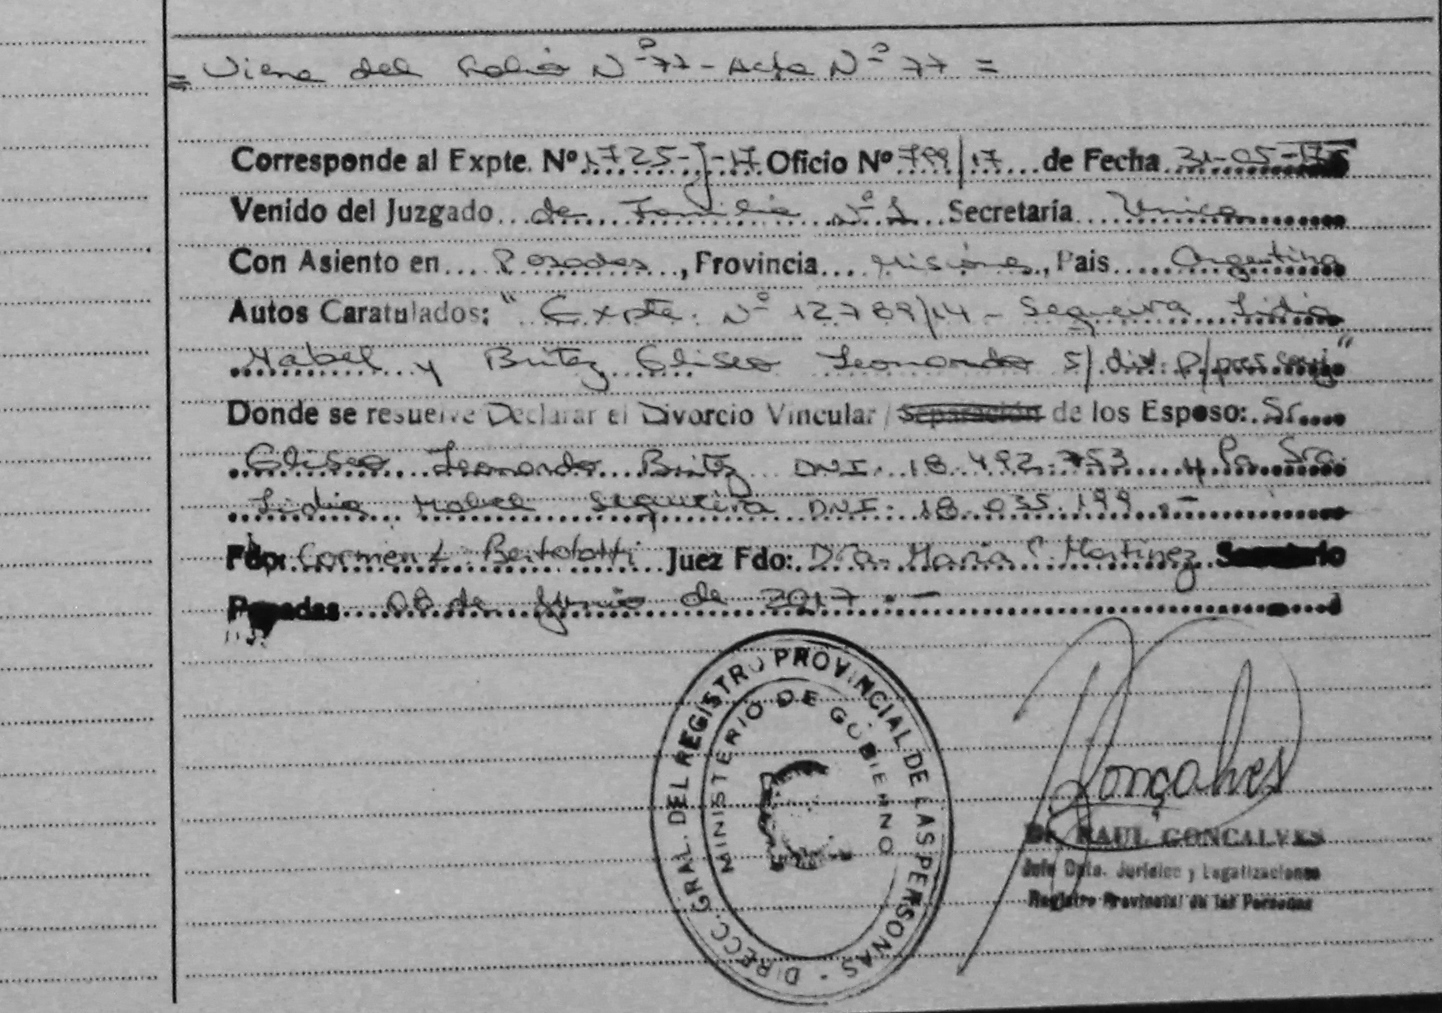 = Viene del Folio Nº 77 - Acta Nº 77 =
Corresponde al Expte. Nº 1725-J-17 Oficio Nº 799/17 de Fecha 31-05-17
Venido del Juzgado de Familia Nº 1 Secretaría Unica
Con Asiento en Posadas, Provincia Misiones, Pais Argentina
Autos Caratulados: "Expte. Nº 12789/14 - Sequeira Lidia
Mabel y Britez Eliseo Leonardo s/ div. p/ pres. conj"
Donde se resuelve Declarar el Divorcio Vincular / Separación de los Esposo: Sr.
Eliseo Leonardo Britez DNI. 18.492.753 y la Sra.
Lidia Mabel Sequeira DNI: 18.035.199.-
Fdo: Carmen L. Bertolotti Juez Fdo: Dra. María C. Martinez Secretario
Posadas 08 de Junio de 2017.-
DIRECC. GRAL. DEL REGISTRO PROVINCIAL DE LAS PERSONAS -
MINISTERIO DE GOBIERNO
Gonçalves
Dr. RAUL GONCALVES
Jefe Dpto. Jurídico y Legalizaciones
Registro Provincial de las Personas